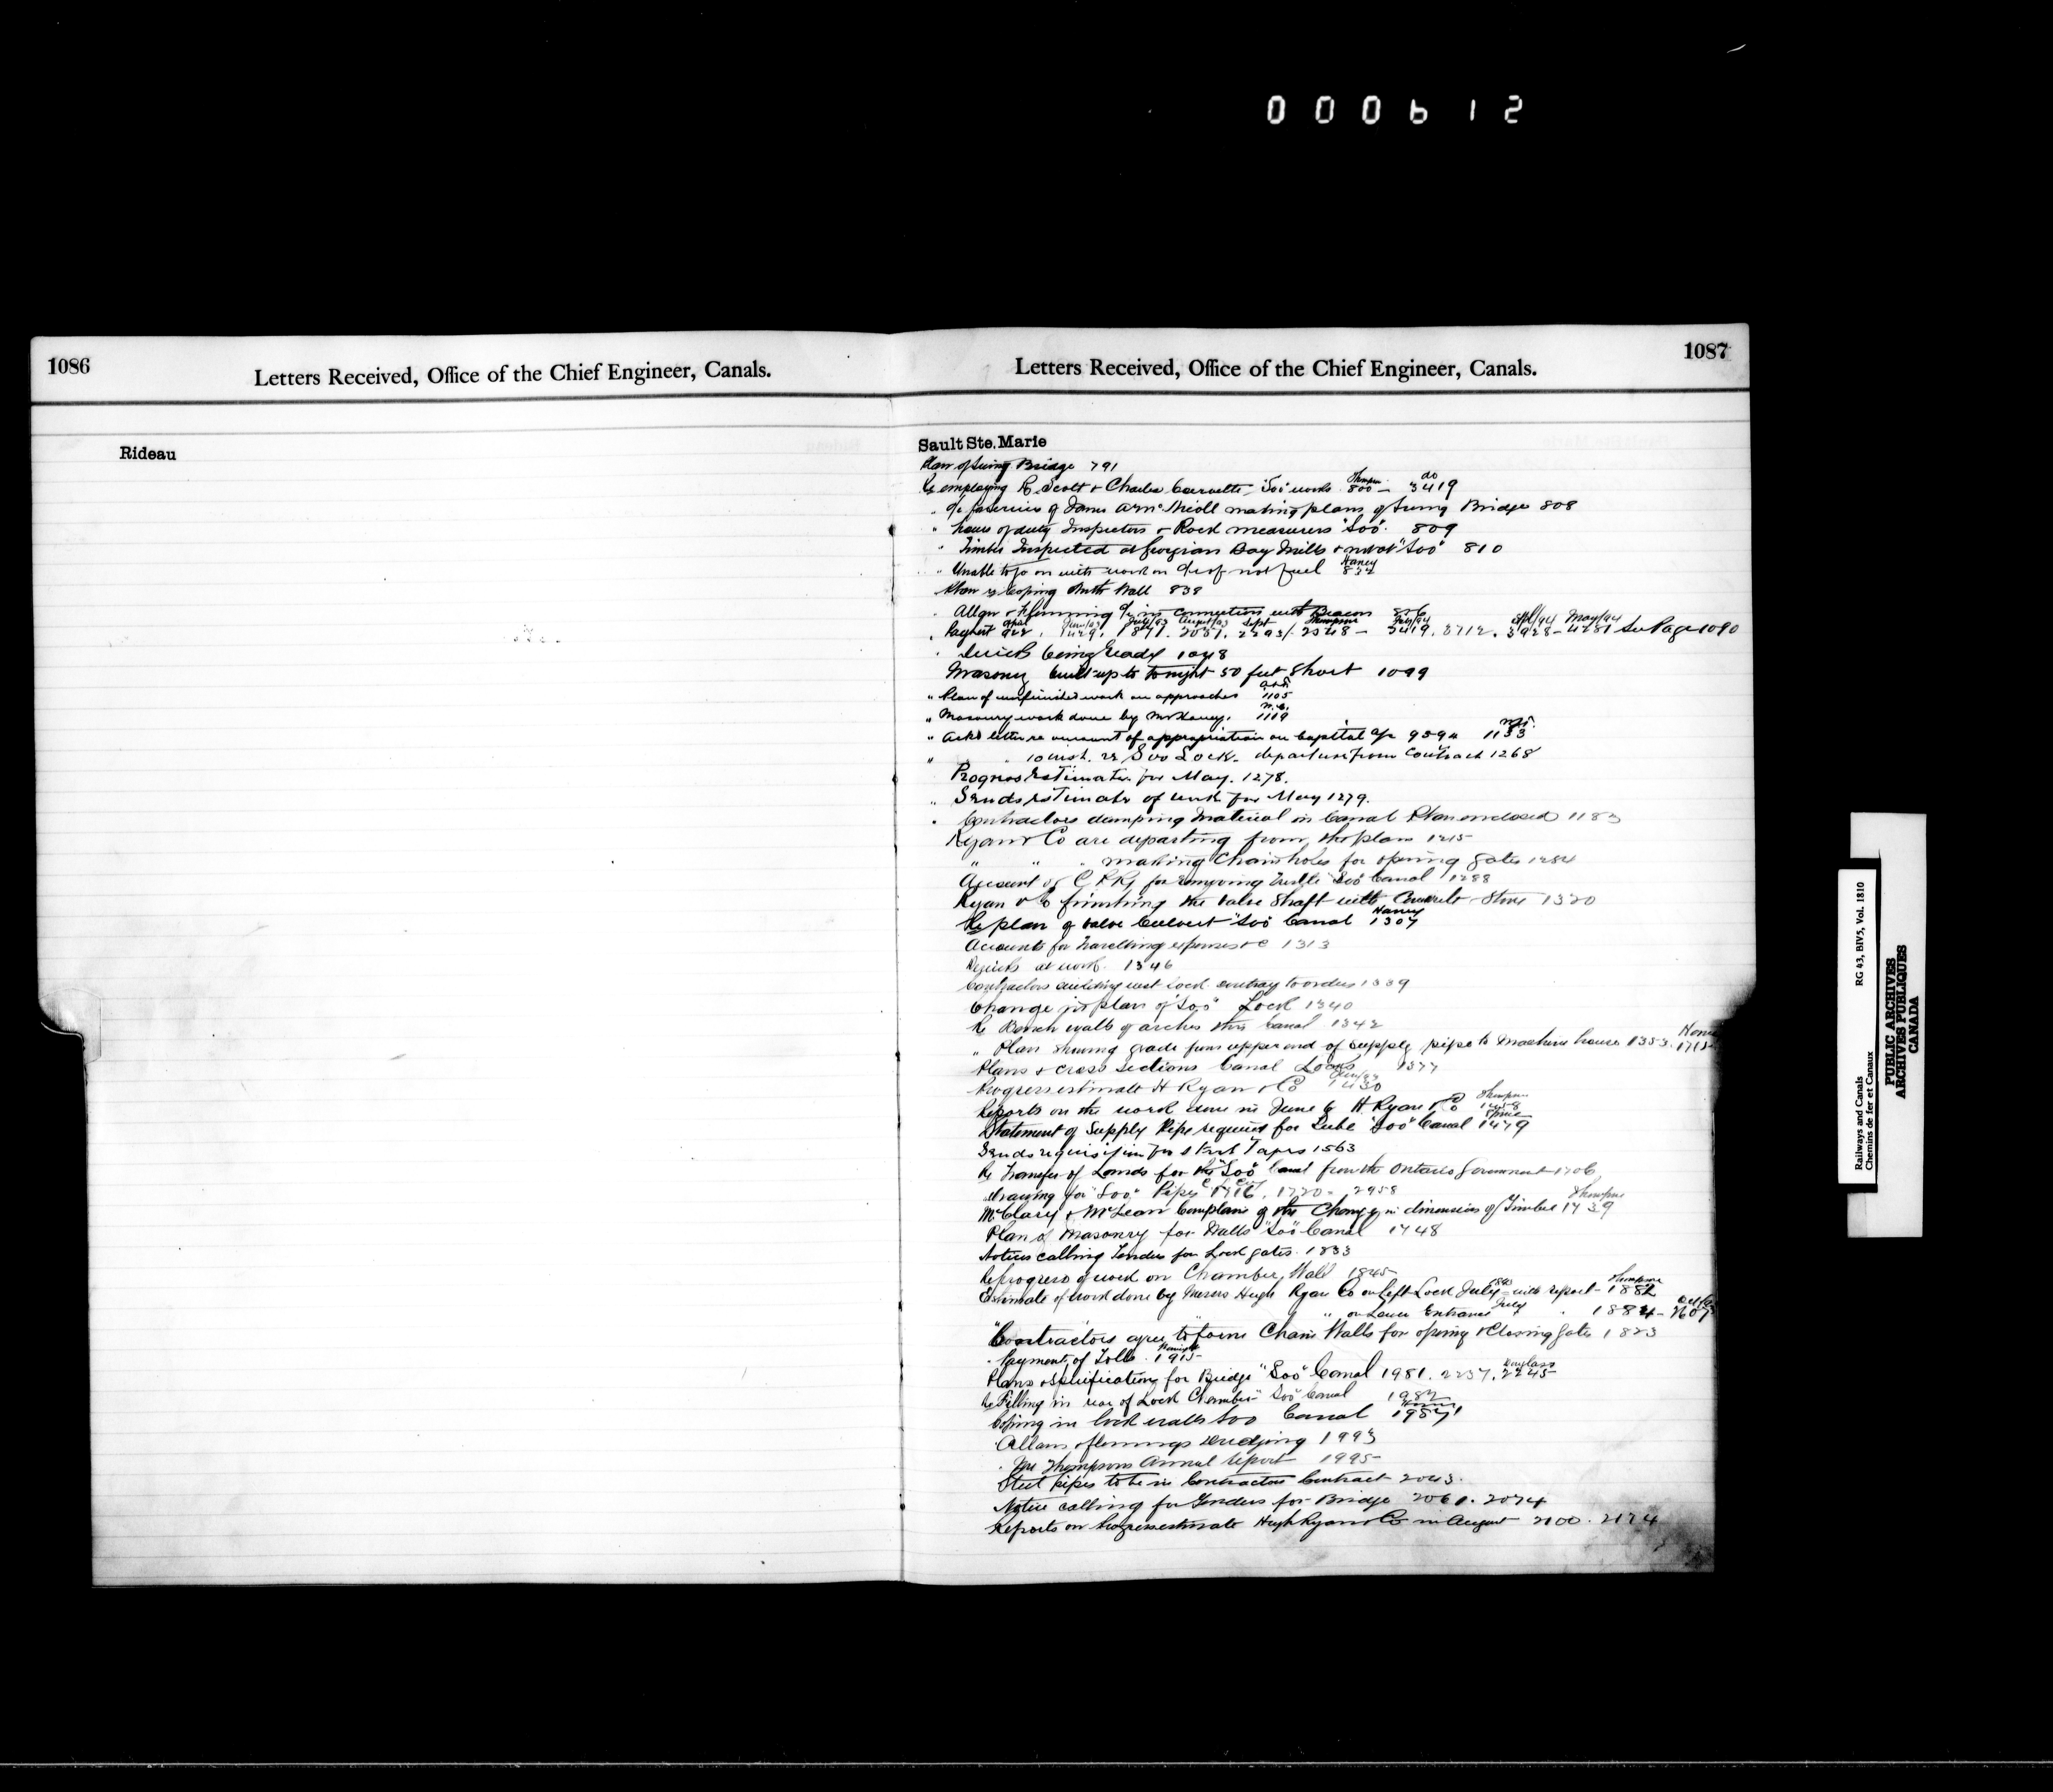 000612
1086
Letters Received, Office of the Chief Engineer, Canals.
Rideau
1087
Letters Received, Office of the Chief Engineer, Canals.
Sault Ste. Marie
Plan of Swing Bridge 791
Re employing R. Scott & Charles "Soo" works Thompson 800 - do 3419
making plans of Swing Bridge 808
" hours of duty Inspectors & Rock measurers "Soo" 809
" Timber Inspected at Georgian Bay Mills & not at "Soo" 810
" Unable to go on with work on of not fuel Haney 832
Coping North Wall 838
Allan & Fleming a/c in connection with Beacon 826
Payment April 922, June/93 1429, July/93 1871, August/93 2051, Sept 2293/ Thompson 2548 - 3419, 3712, Apl/94 3928 - May/94 4281 See Page 1090
Derrick being ready 1048
Masonry built up to tonight 50 feet short 1099
" Plan of unfinished work on approaches 1105
" Masonry work done by Mr Haney. 1119
" Ackd letter re amount of appropriation on Capital a/c 989 1133
" " 10 inst. re Soo Lock. departure from Contract 1268
Progress Estimate for May. 1278.
" Sends estimate of work for May 1279.
" Contractors dumping Material in Canal Plan enclosed 1183
Ryan & Co are departing from the plans 1215
" " " making Chain holes for opening gates 1282
Account of C.P.Ry for removing "Soo" Canal 1288
Ryan & Co finishing the valve shaft with Concrete Stone 1320
Re plan of valve Culvert "Soo" Canal Haney 1307
Accounts for travelling expenses &c 1313
Derrick at work. 1346
Contractors building west Lock contrary to orders 1339
Change in plan of "Soo" Lock 1340
Re Bench walls of arches this Canal 1342
" Plan showing grade from upper end of supply pipe to machine house 1353. 1715
Plans & cross sections Canal Locks 1377
Progress estimate H Ryan & Co June/93 1430
Reports on the work done in June by H Ryan & Co Thompson 1458
Statement of Supply Pipe required for "Soo" Canal 1479
Sends requisition for Tapes 1563
Re Transfer of Lands for the "Soo" Canal from the Ontario Government 1706
Drawing for "Soo" Pipes 1716, 1720 - 2958
McClary & McLean Complain of the Change in dimensions of Timber Thompson 1739
Plan of Masonry for Walls "Soo" Canal 1748
Notices calling Tenders for Lock gates 1833
Re progress of work on Chamber Wall 1845
Estimate of work done by Messrs Hugh Ryan Co on Lock July with report - Thompson 1882
" on Lower Entrance July " 1884 - 2607
"Contractors agree to form Chain Walls for opening & Closing gates 1823
Payment of Tolls 1915
Plans & specification for Bridge "Soo" Canal 1981. 2237. Douglass 2245
Re Filling in rear of Lock Chamber "Soo" Canal 1982
Coping in lock walls Soo Canal 1957
Allans & Flemings Dredging 1993
Mr Thompsons Annual report 1995
Steel pipes to be in Contractors Contract 2043.
Notice calling for Tenders for Bridge 2061. 2074
Reports on Progress estimate Hugh Ryan & Co in August 2100. 2174
Railways and Canals
Chemins de fer et Canaux
RG 43, BIV5, Vol. 1810
PUBLIC ARCHIVES
ARCHIVES PUBLIQUES
CANADA